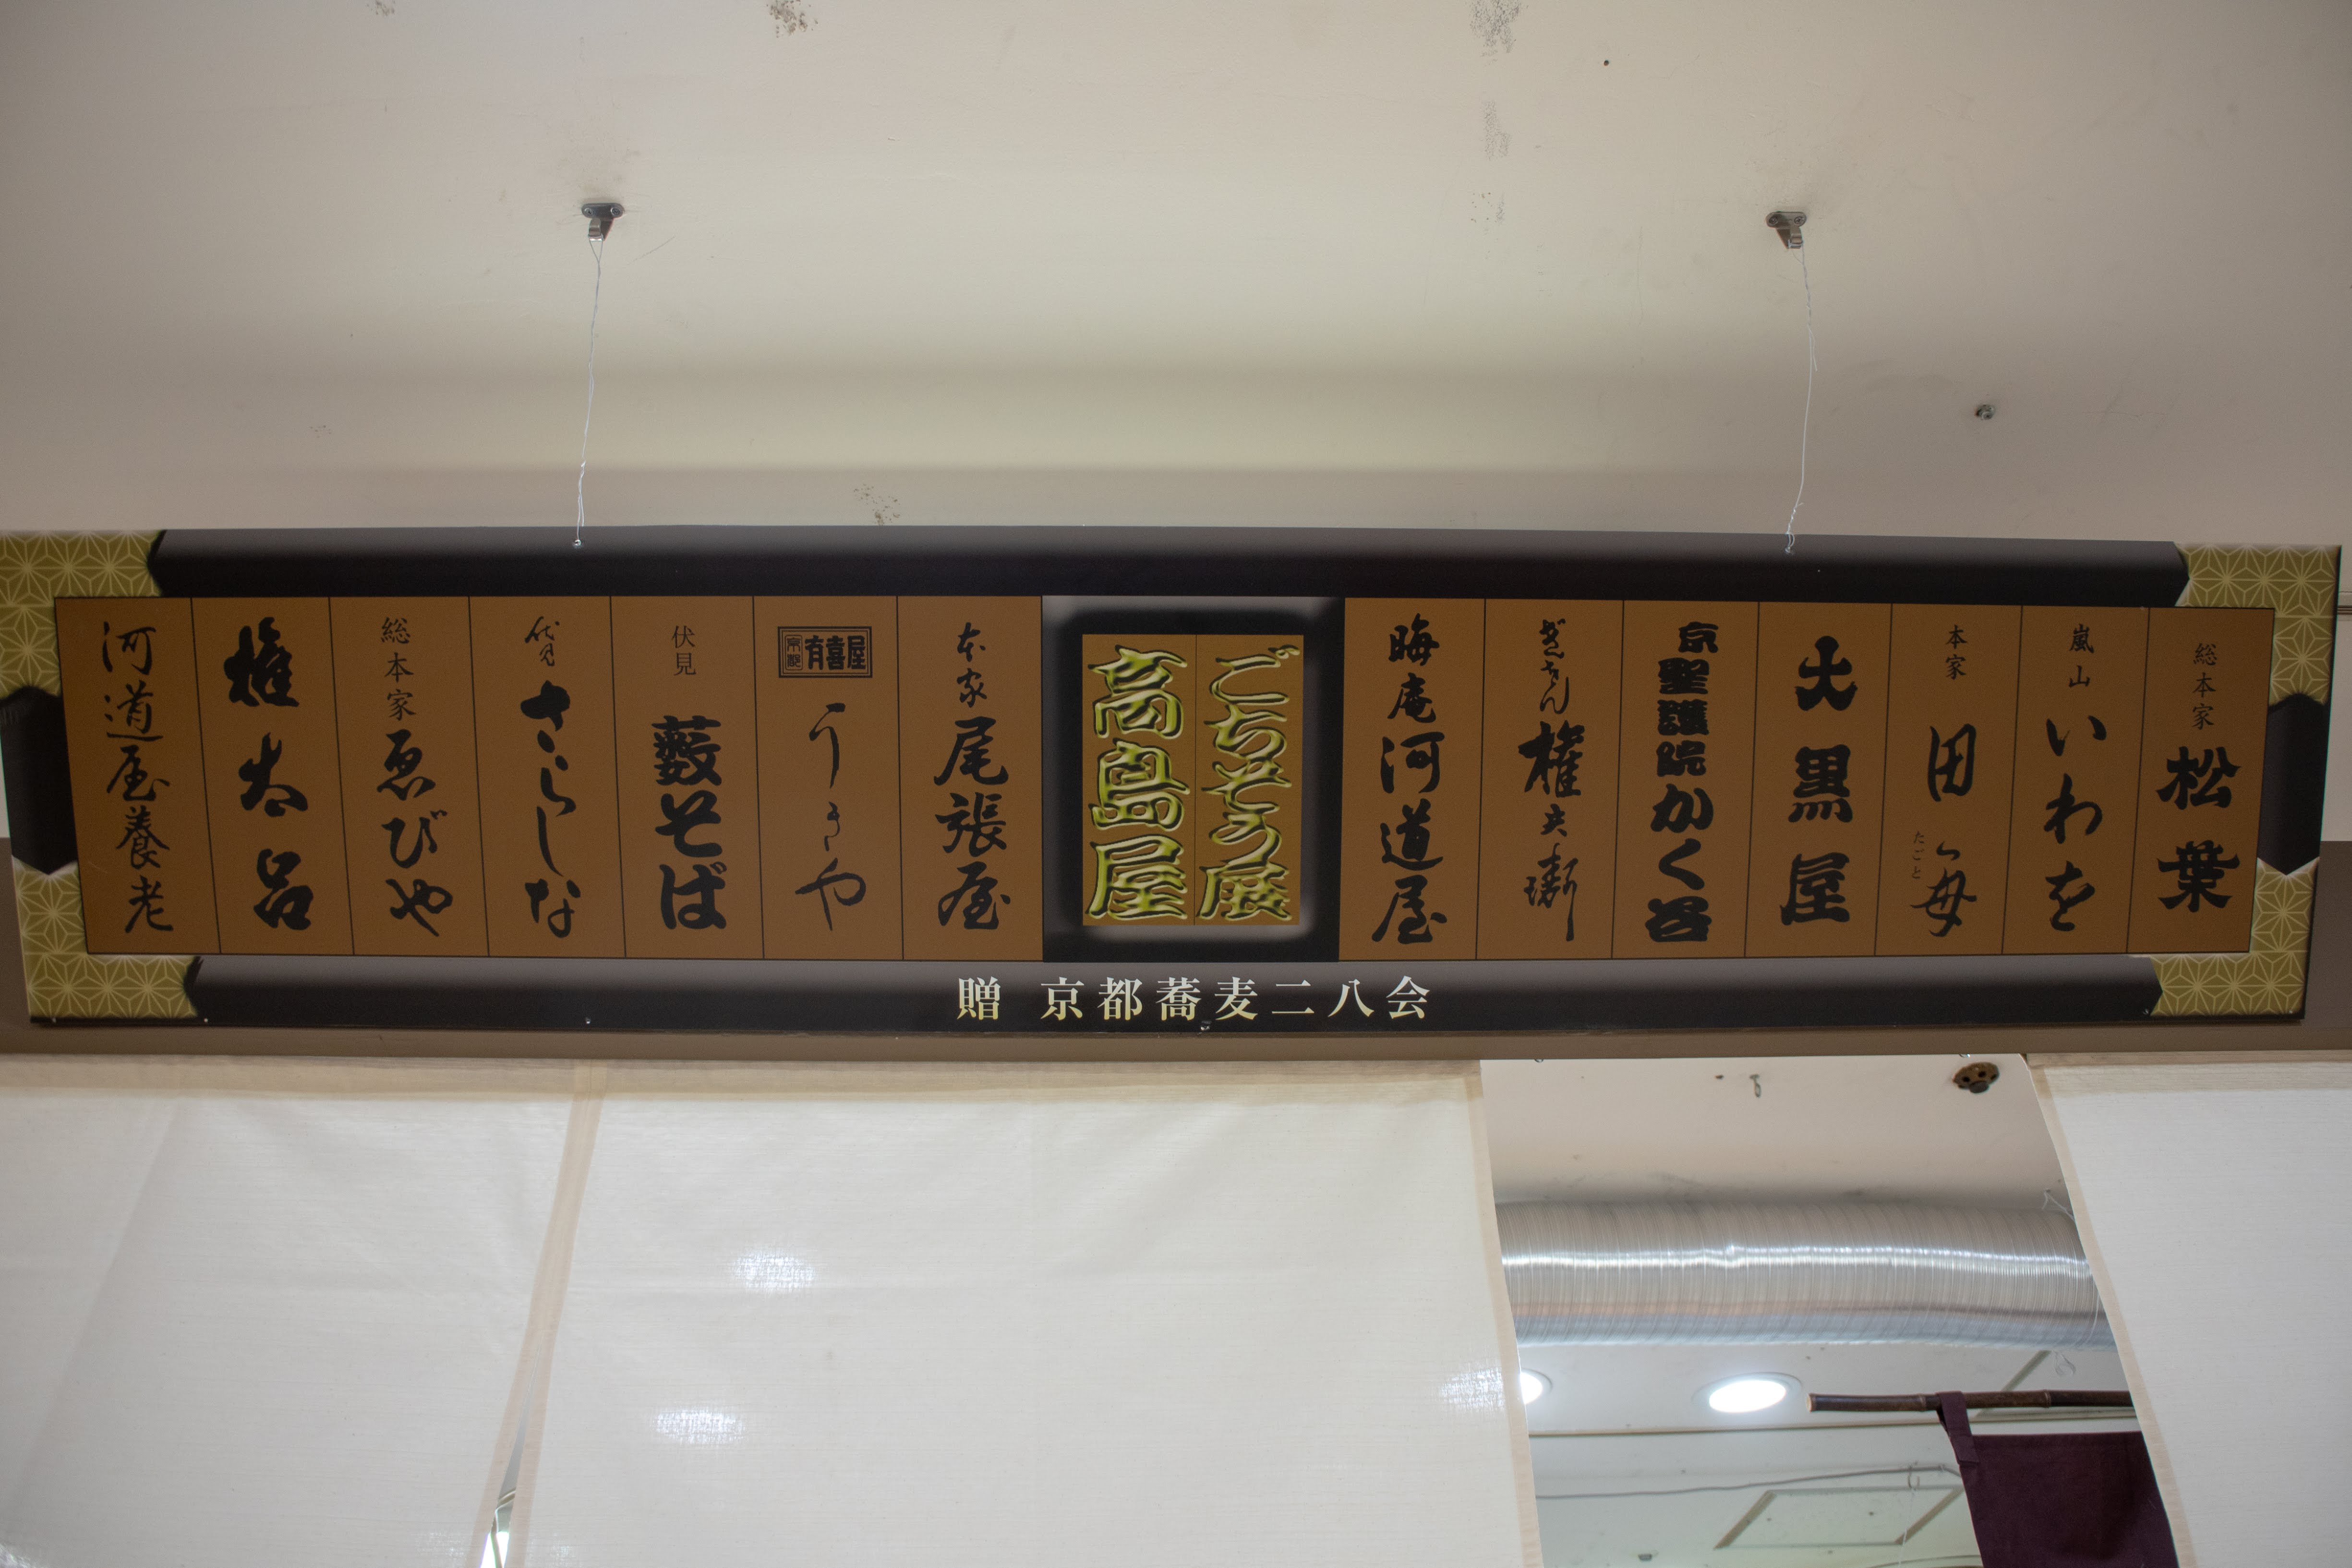 総本家 松葉
嵐山 いわを
本家 田毎 たごと
大黒屋
京聖護院かく谷
ぎをん 権兵衛
晦庵 河道屋
ごちそう展
高島屋
本家 尾張屋
京都 有喜屋 うきや
伏見 藪そば
伏見 さらしな
総本家 ゑびや
権太呂
河道屋養老
贈 京都蕎麦二八会